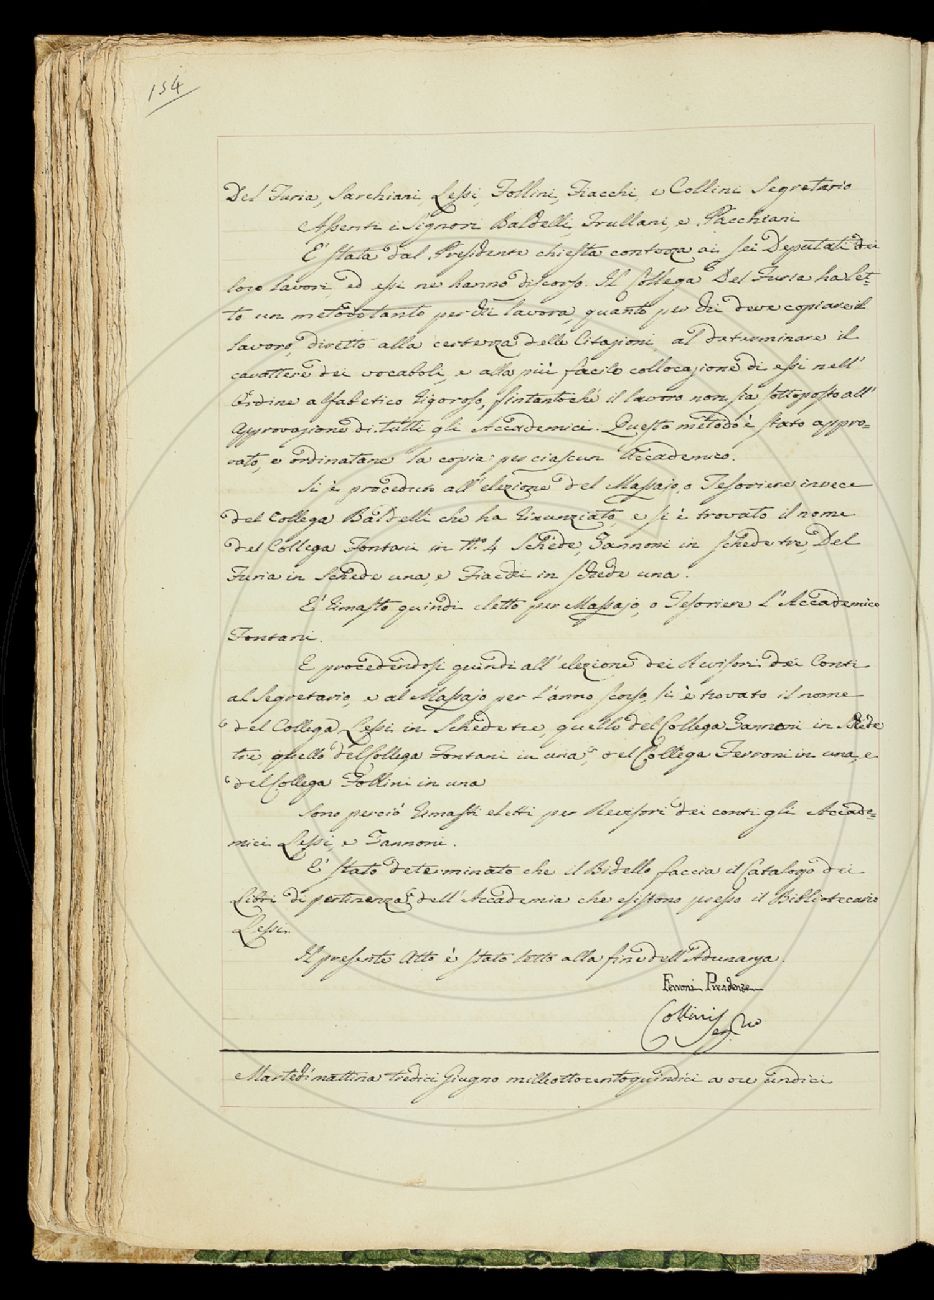 154
Del Furia, Sarchiani, Lessi, Follini, Fiacchi, e Collini Segretario
Assenti i Signori Baldelli, Grullani, e Pacchiani
E' stata dal Presidente chiesta contezza ai sei Deputati dei
loro lavori, ed essi ne hanno discorso. Il Collega Del Furia ha let-
to un metodo tanto per chi lavora quanto per chi deve copiare il
lavoro, diretto alla certezza delle Citazioni al determinare il
carattere dei vocaboli, e alla più facile collocazione di essi nell'
Ordine alfabetico rigoroso, fintantochè il lavoro non sia sottoposto all'
Approvazione di tutti gli Accademici. Questo metodo è stato appro-
vato, e ordinatane la copia per ciascun Accademico.
Si è proceduto all'elezione del Massajo, o Tesoriere invece
del Collega Baldelli che ha rinunziato, e si è trovato il nome
del Collega Fontani in N.° 4 Schede, Zannoni in schede tre, Del
Furia in Schede una, e Fiacchi in schede una.
E' rimasto quindi eletto per Massajo, o Tesoriere l'Accademico
Fontani.
E procedendosi quindi all'elezione dei Revisori dei Conti
al Segretario, e al Massajo per l'anno scorso, si è trovato il nome
del Collega Lessi in Schede tre, quello del Collega Zannoni in Schede
tre, quello del Collega Fontani in una, del Collega Ferroni in una, e
del Collega Follini in una
Sono perciò rimasti eletti per Revisori dei conti gli Accade-
mici Lessi, e Zannoni.
E' stato determinato che il Bidello faccia il Catalogo dei
Libri di pertinenza dell'Accademia che esistono presso il Bibliotecario
Lessi.
Il presente Atto è stato letto alla fine dell'Adunanza.
Ferroni Presidente
Collini Seg.rio
Martedì mattina tredici Giugno milleottocentoquindici a ore undici